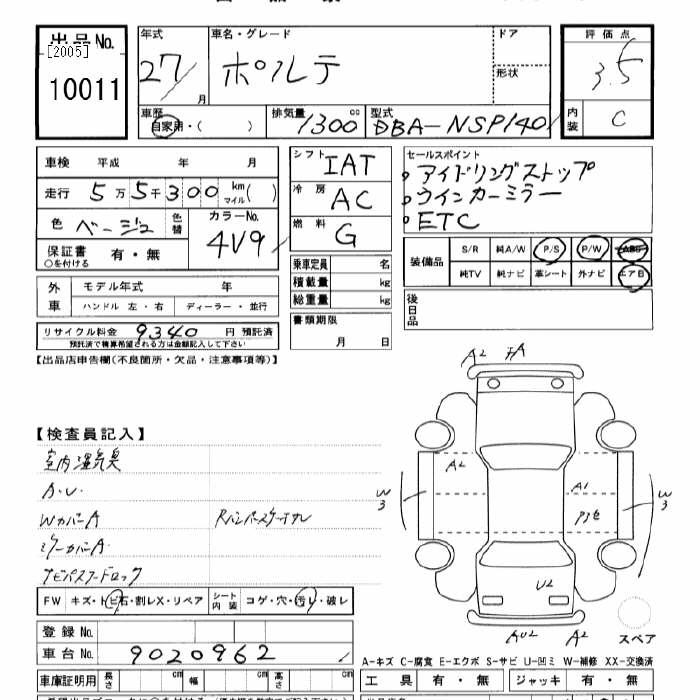 出品No.
[2005]
10011
年式
27
月
車名・グレード
ポルテ
ドア
形状
評価点
3.5
内装
C
車歴
自家用・( )
排気量
1300 cc
型式
DBA-NSP140
車検 平成 年 月
走行 5万5千300 km マイル( )
色 ベージュ 色替
カラーNo.
4V9
保証書 有・無
○を付ける
シフト IAT
冷房 AC
燃料 G
セールスポイント
アイドリングストップ
ウインカーミラー
ETC
装備品 S/R 純A/W P/S P/W ABS
純TV 純ナビ 革シート 外ナビ エアB
外車 モデル年式 年
ハンドル 左・右 ディーラー・並行
乗車定員 名
積載量 kg
総重量 kg
後日品
リサイクル料金 9340 円 預託済
預託済で精算希望される方は金額記入して下さい
書類期限
月 日
【出品店申告欄(不良箇所・欠品・注意事項等)】
【検査員記入】
室内湿気臭
A.U.
WカバーA
ミラーカバーA
A2
A2
A1
W3
W3
U2
AU2
A2
スペア
FW キズ・トビ石・割レX・リペア シート内装 コゲ・穴・汚レ・破レ
登録No.
車台No. 9020962
A-キズ C-腐食 E-エクボ S-サビ U-凹ミ W-補修 XX-交換済
車庫証明用 長さ cm 幅 cm 高さ cm
工具 有・無 ジャッキ 有・無